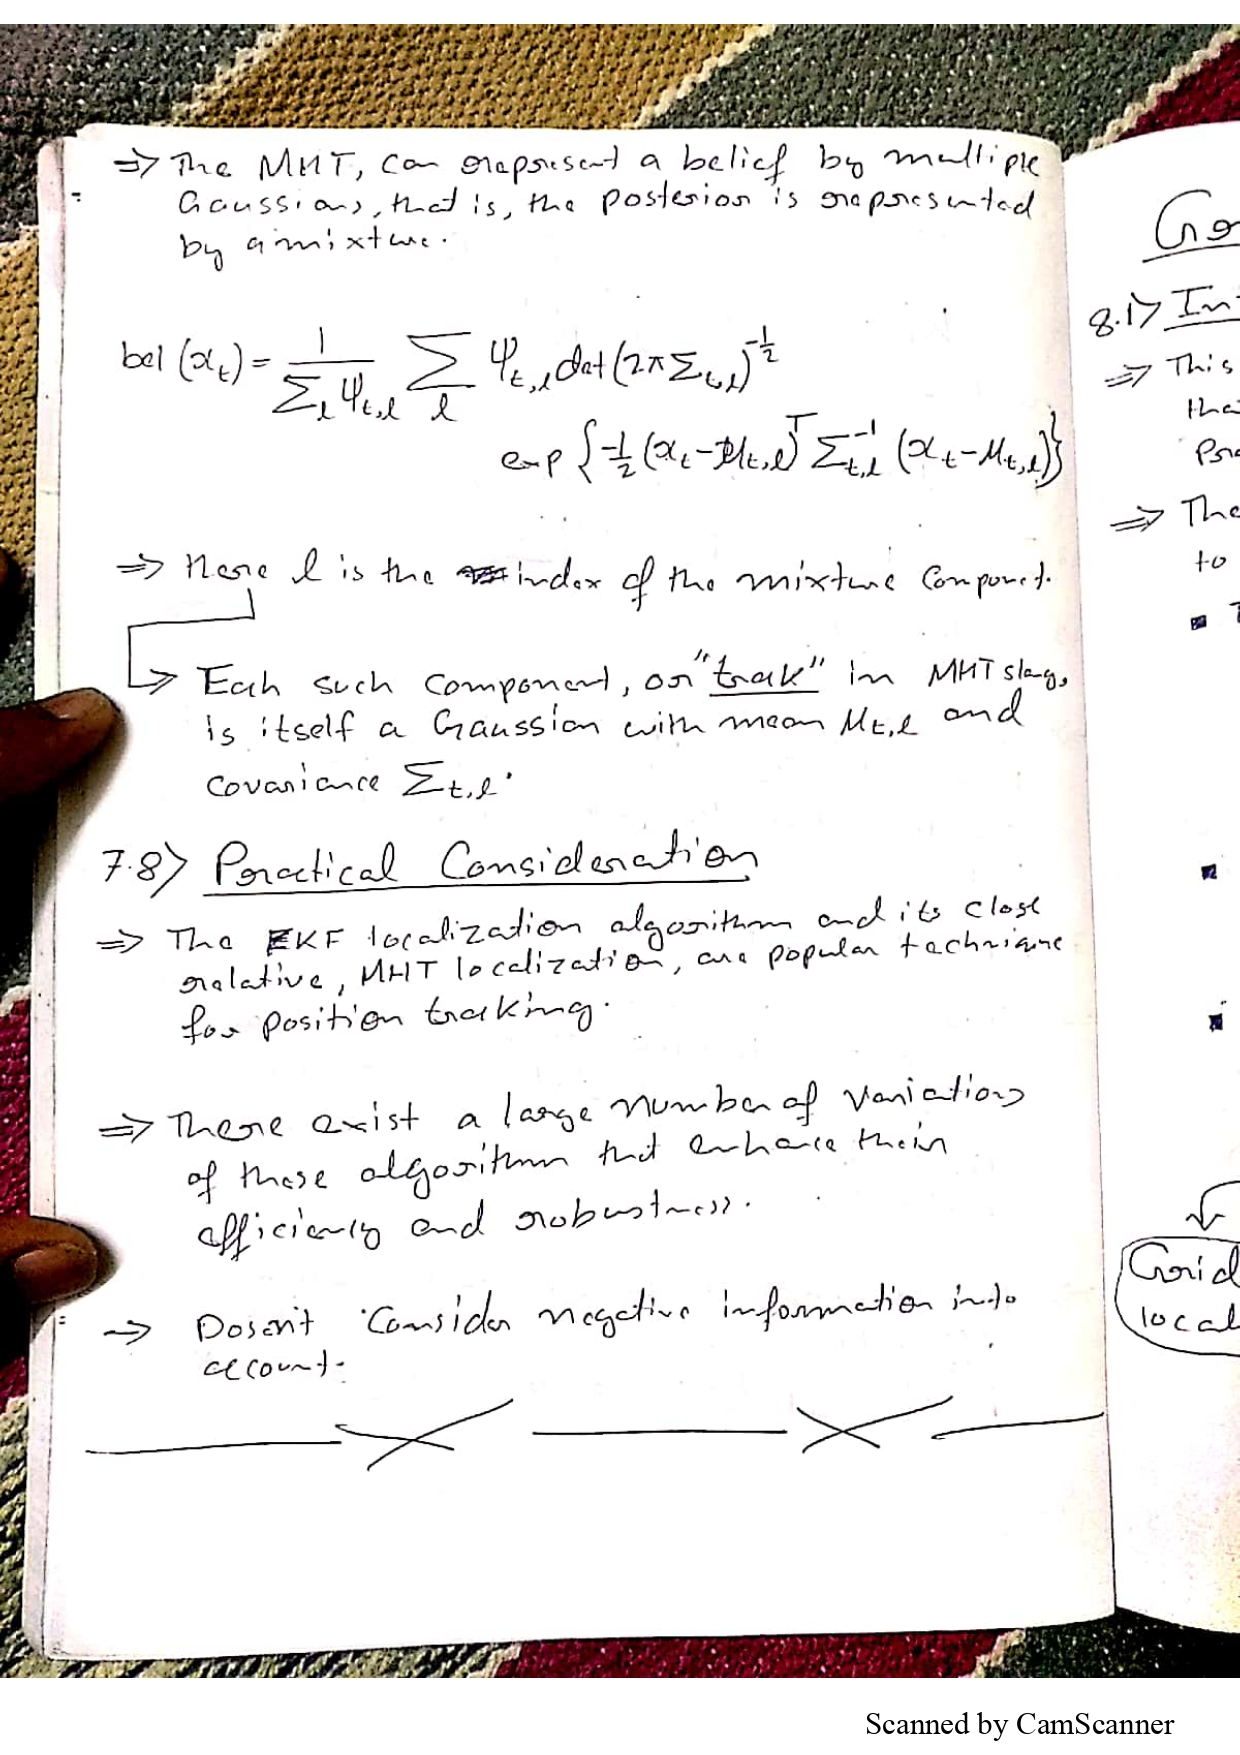 ⇒ The MHT, can represent a belief by multiple
Gaussians, that is, the posterior is represented
by a mixture.
bel (x_t) = 1 / Σ_l ψ_{t,l} Σ_l ψ_{t,l} det (2π Σ_{t,l})^{-1/2}
exp {-1/2 (x_t - μ_{t,l})^T Σ_{t,l}^{-1} (x_t - μ_{t,l})}
⇒ Here l is the index of the mixture Componet.
⇒ Each such component, or "track" in MHT slang,
is itself a Gaussian with mean μ_{t,l} and
covariance Σ_{t,l}.
7.8) Practical Consideration
⇒ The EKF localization algorithm and its close
relative, MHT localization, are popular technique
for position tracking.
⇒ There exist a large number of variations
of these algorithm that enhance their
efficiency and robustness.
⇒ Dosen't Consider negative information into
account.
8.1) Int
⇒ This
tha
⇒ The
to
Grid
local
Scanned by CamScanner